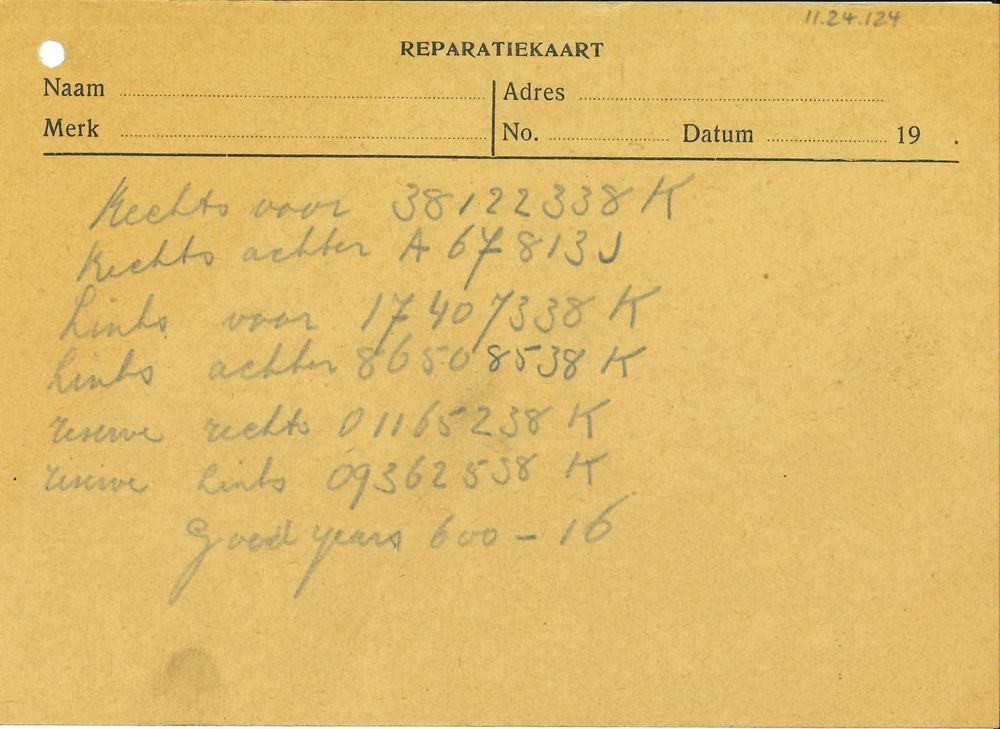 11.24.124
REPARATIEKAART
Naam
Adres
Merk
No. Datum 19 .
Rechts voor 38122338 K
Rechts achter A 67813 J
Links voor 17407338 K
Links achter 86508538 K
reserve rechts 01165238 K
reserve links 09362538 K
Good years 600 – 16